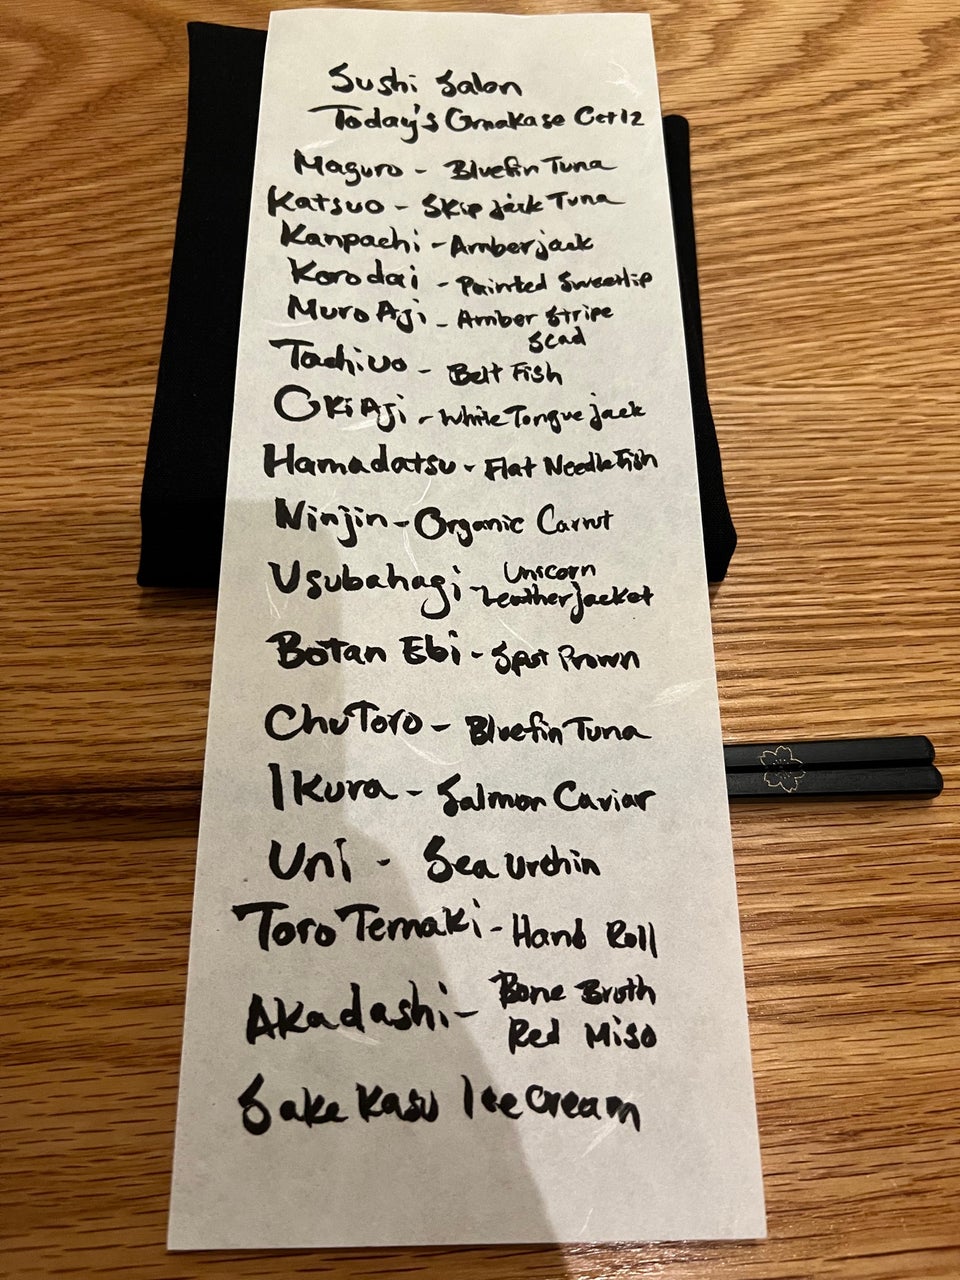 Sushi Salon
Today's Omakase Oct 12
Maguro - Bluefin Tuna
Katsuo - Skip jack Tuna
Kanpachi - Amberjack
Korodai - Painted Sweetlip
Muro Aji - Amber Stripe
Scad
Tachiuo - Belt Fish
Oki Aji - White Tongue jack
Hamadatsu - Flat Needle Fish
Ninjin - Organic Carrot
Usubahagi - Unicorn
Leather jacket
Botan Ebi - Spot Prawn
Chu Toro - Bluefin Tuna
Ikura - Salmon Caviar
Uni - Sea Urchin
Toro Temaki - Hand Roll
Akadashi - Bone Broth
Red Miso
Sake Kasu Ice Cream